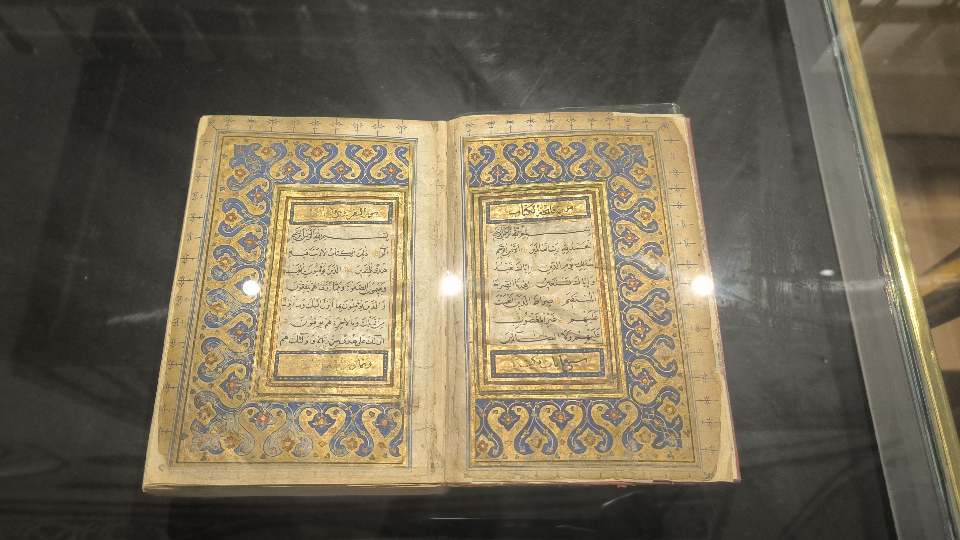 سورة فاتحة الكتاب
بسم الله الرحمن الرحيم
الحمد لله رب العالمين الرحمن الرحيم
مالك يوم الدين اياك نعبد
واياك نستعين اهدنا الصراط
المستقيم صراط الذين انعمت
عليهم غير المغضوب
عليهم ولا الضالين
سورة البقرة
بسم الله الرحمن الرحيم
الم ذلك الكتاب لا ريب فيه
هدى للمتقين الذين يؤمنون بالغيب
ويقيمون الصلوة ومما رزقناهم ينفقون
والذين يؤمنون بما انزل اليك وما انزل
من قبلك وبالاخرة هم يوقنون
اولئك على هدى من ربهم واولئك هم